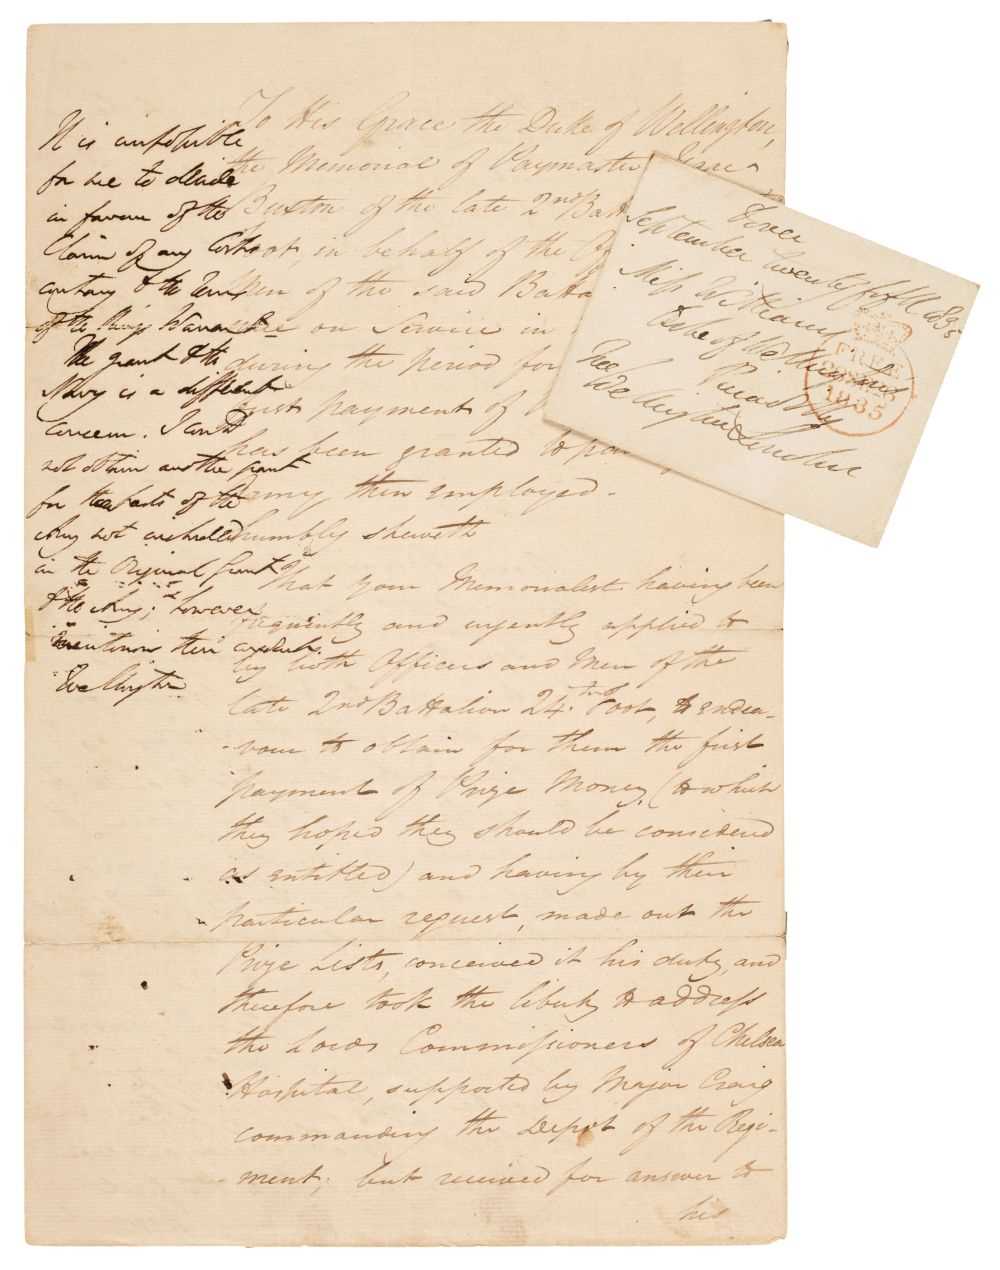 To His Grace the Duke of Wellington,
the Memorial of Paymaster
Buxton of the late 2nd Batt
Foot, in behalf of the
Men of the said Batta
on Service in
during the period for
first payment of
has been granted to
army then employed.
humbly sheweth
That your Memorialist having been
frequently and urgently applied to
by both Officers and Men of the
late 2nd Battalion 24th Foot, to endea-
-vour to obtain for them the first
payment of Prize Money, (to which
they hoped they should be considered
as entitled) and having by their
particular request, made out the
Prize Lists, conceived it his duty, and
therefore took the liberty to address
the Lords Commissioners of Chelsea
Hospital, supported by Major Craig
commanding the Depot of the Regi-
ment; but received for answer to
his
It is impossible
for me to decide
in favour of the
Claim of any Corps
contrary to the Terms
of the King's Warrant
The grant to the
Navy is a different
concern. I could
not obtain another grant
for the parts of the
Army not included
in the Original Grant
to the Army; however
meritorious their conduct.
Wellington
September twenty fifth 1835
Miss
Duke of Wellington
Free
Wellington
FREE
1835